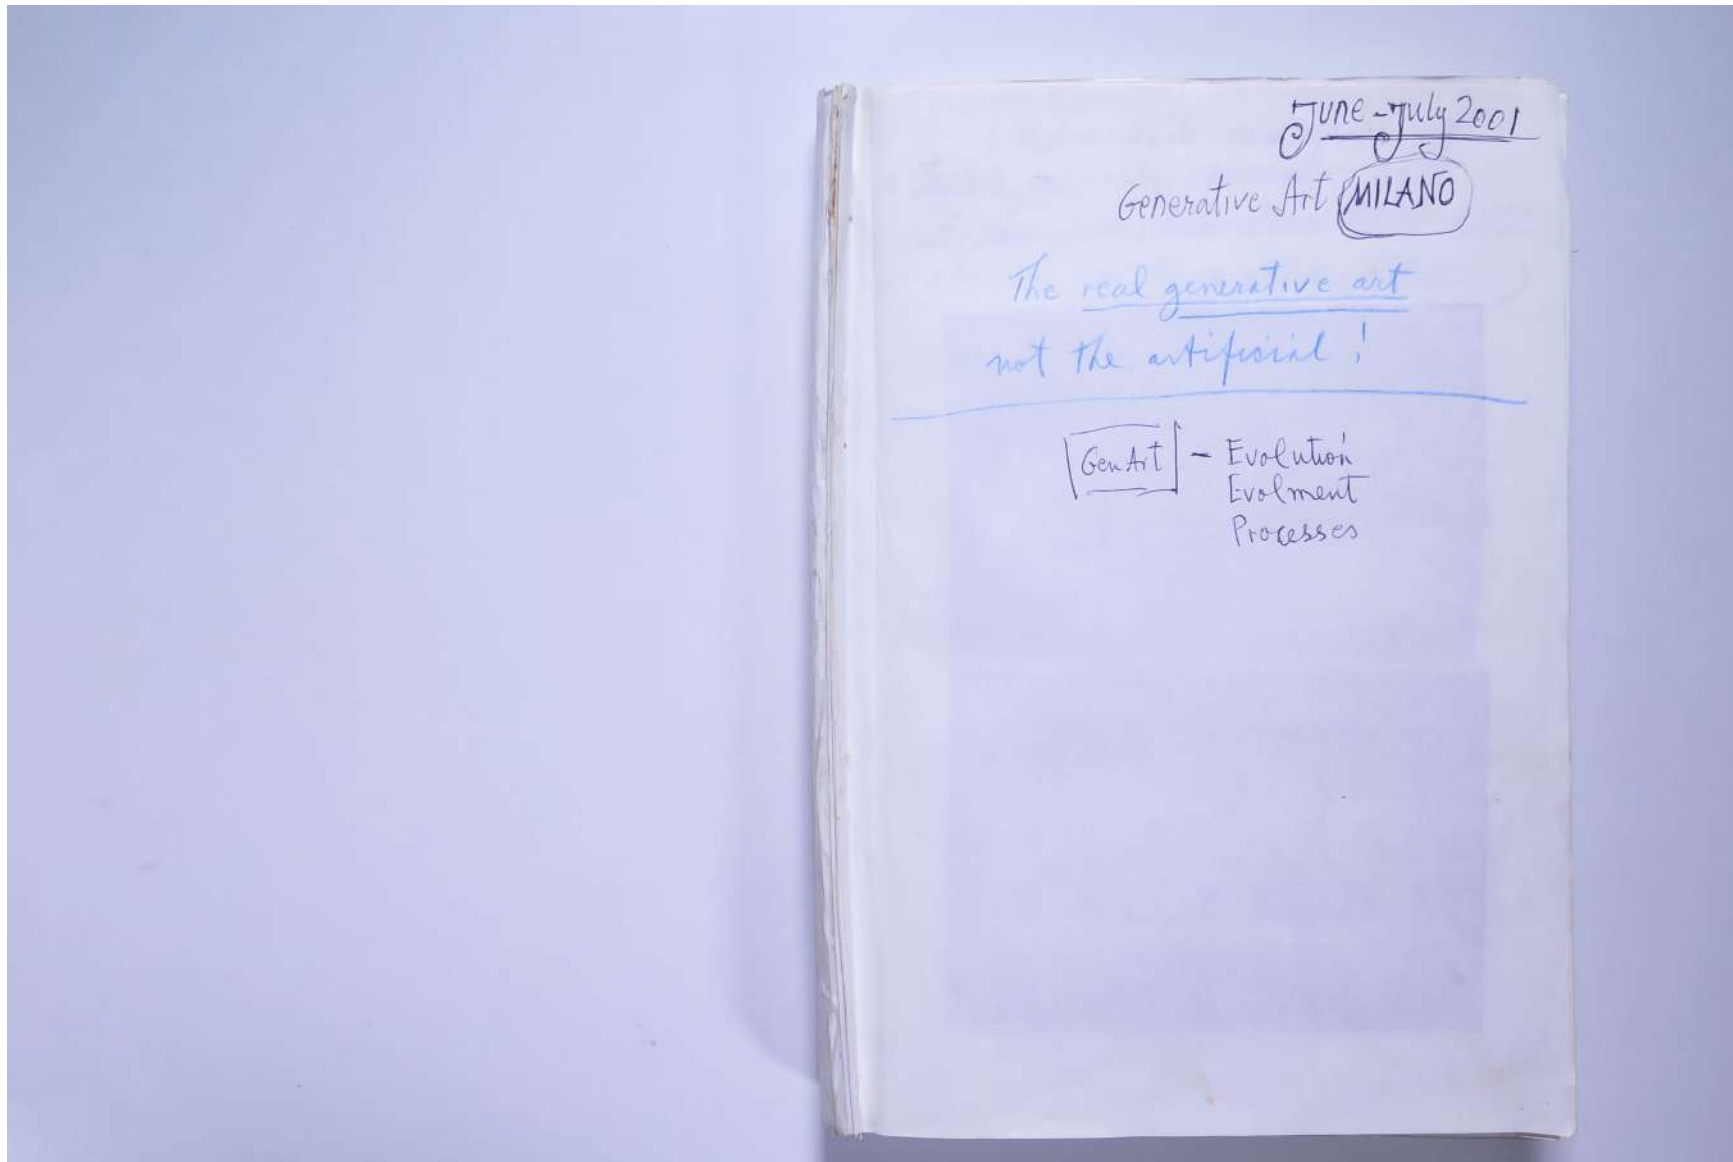 June-July 2001
Generative Art MILANO
The real generative art
not the artificial!
GenArt - Evolution
Evolment
Processes